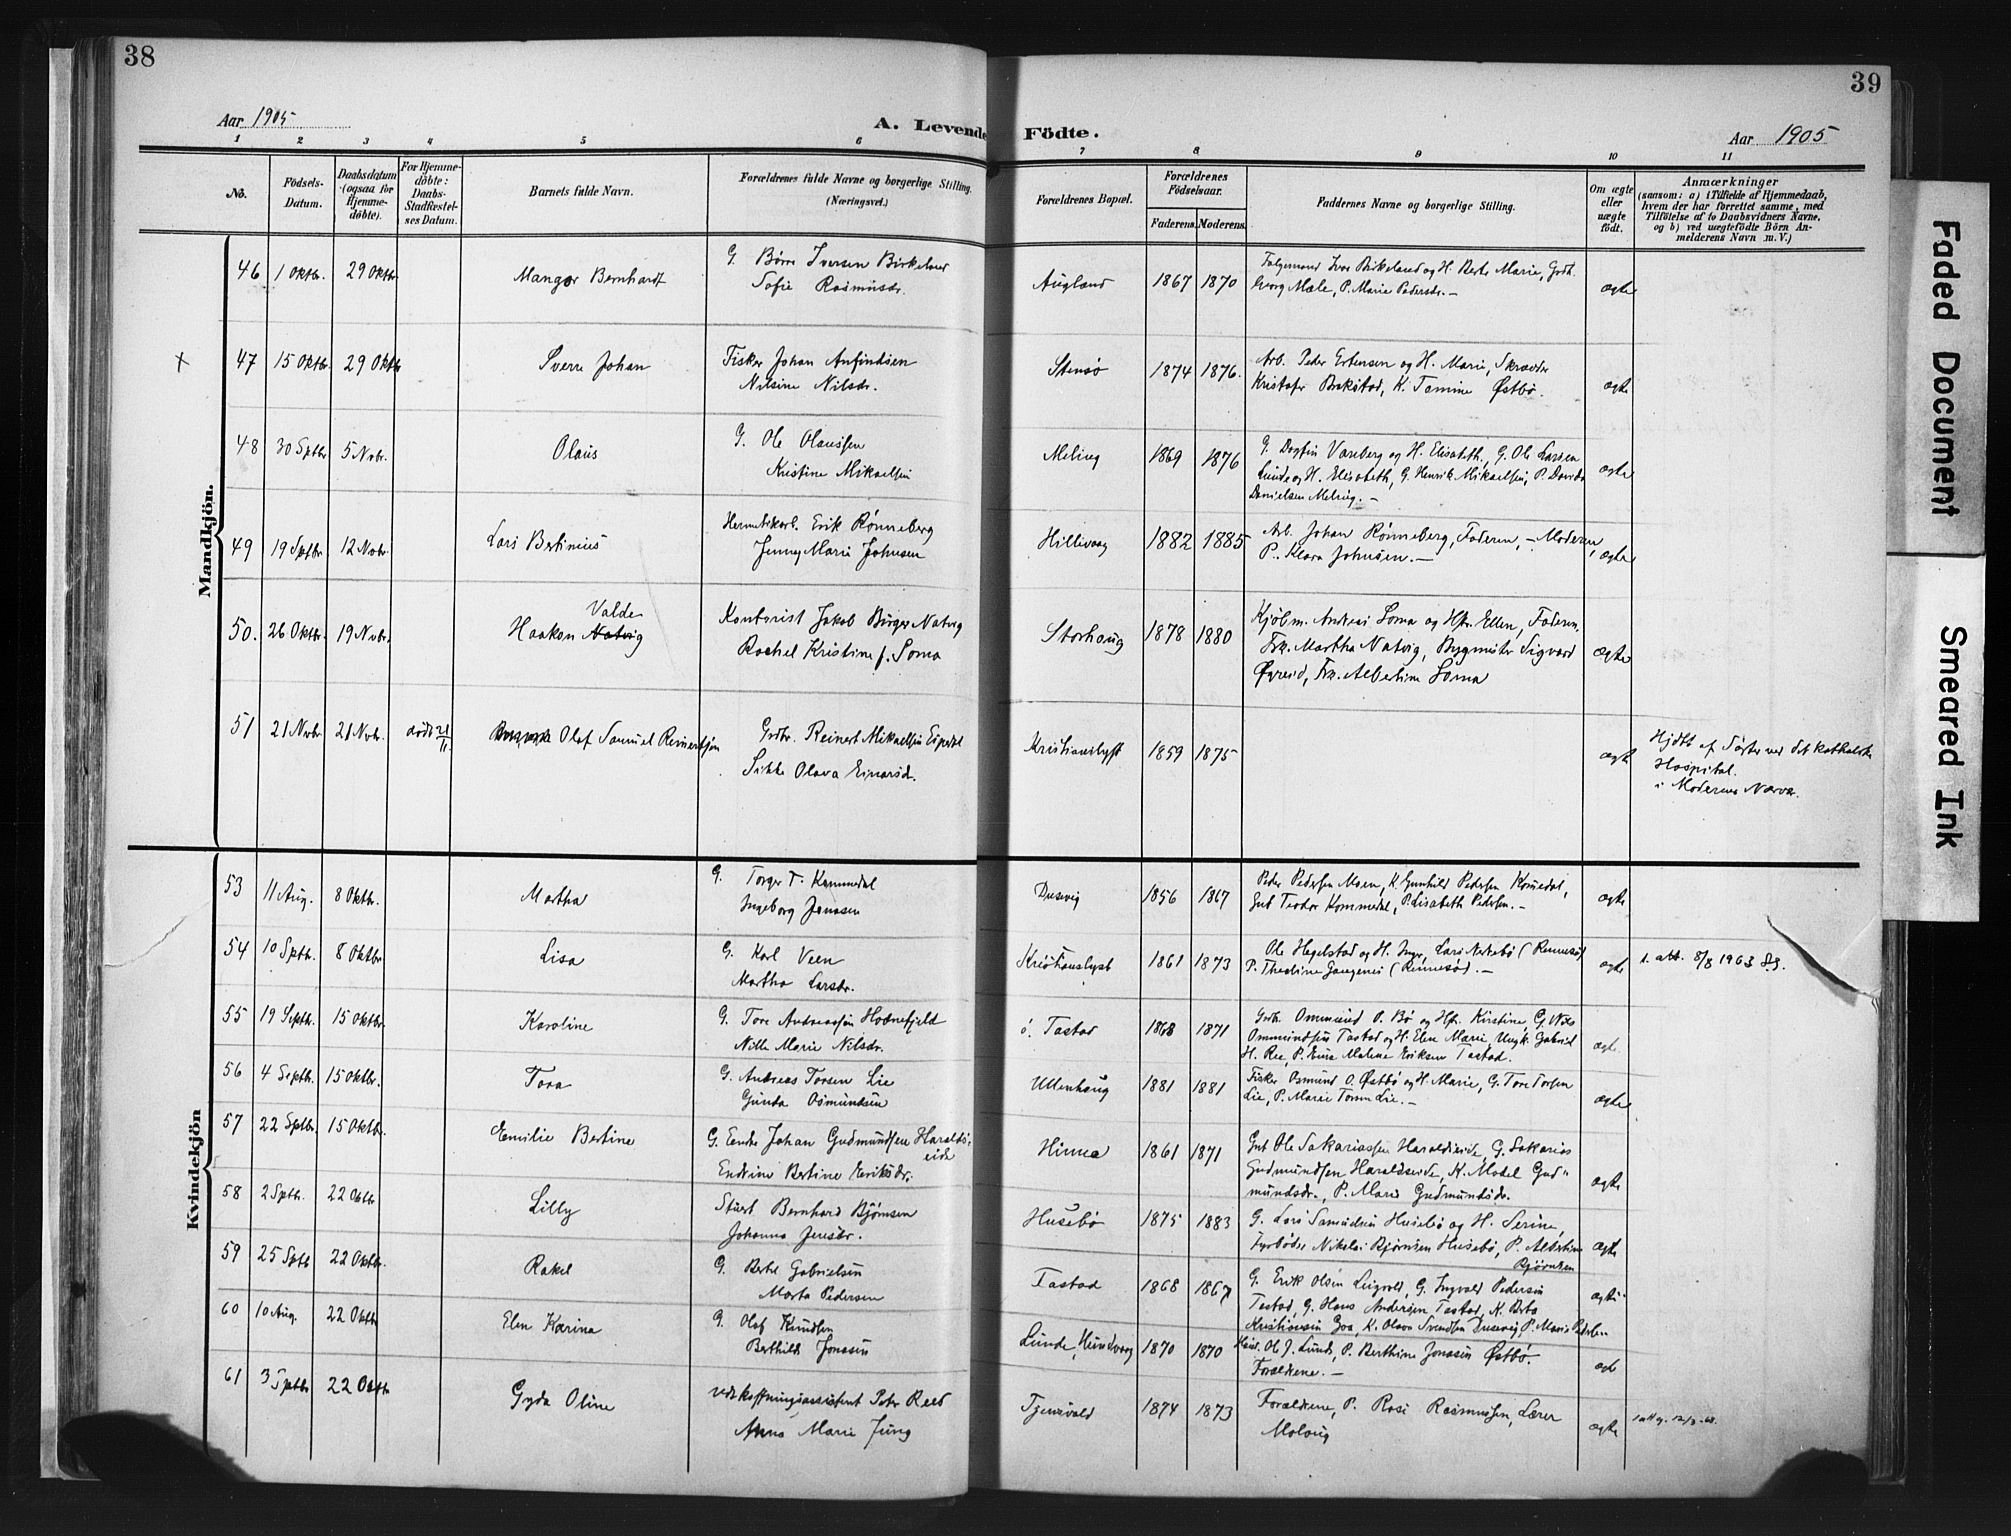 38
39
Aar 1905
A. Levende Födte.
Aar 1905
1 2 3 4 5 6 7 8 9 10 11
No.
Födsels-Datum.
Daabsdatum (ogsaa for Hjemme-döbte).
For Hjemme-döbte: Daabs-Stadfæstelses Datum.
Barnets fulde Navn.
Forældrenes fulde Navne og borgerlige Stilling. (Næringsvei.)
Forældrenes Bopæl.
Forældrenes Födselsaar.
Faderens. Moderens.
Faddernes Navne og borgerlige Stilling.
Om ægte eller uægte födt.
Anmærkninger
(saasom: a) i Tilfælde af Hjemmedaab, hvem der har forrettet samme, med Tilföielse af to Daabsvidners Navne, og b) ved uægtefödte Börn Anmelderens Navn m. V.)
Mandkjön.
46 1 Oktbr. 29 Oktbr Mangor Bernhardt
G. Børre Iversen Birkeland
Sofie Rasmusdr.
Augland 1867 1870
Birkeland og H. Berte Marie,
Georg Mæle, P. Marie Pedersdr. –
ægte
47 15 Oktbr. 29 Oktb Sverre Johan
Fisker Johan Anfindsen
Nilsine Nilsdr.
Stensø 1874 1876.
Arb. Peder Ertensen og H. Marie, Skrædder
Kristofer Bakstad, K. Tomine Østbø.
ægte
48 30 Sptbr 5 Nvbr. Olaus
G. Ole Olaussen
Kristine Mikaelsen
Meling 1869 1876
G. Vareberg og H. Elisabeth, G. Ole Larsen
Lunde og H. Elisabeth, G. Henrik Mikaelsen, P.
Danielsen Meling. –
ægte
49 19 Sptbr 12 Nvbr. Lars Bertinius
Erik Rønneberg
Jenny Marie Johnsen
Hillevaag 1882 1885
Arb. Johan Rønneberg, Faderen, – Moderen,
P. Klara Johnsen. –
ægte
50. 26 Oktbr. 19 Nvbr. Haakon Valde
Natvig
Kontorist Jakob Birger Natvig
Rachel Kristine f. Soma
Storhaug 1878 1880
Kjøbm. Andreas Soma og Hfr. Ellen, Faderen.
Frk. Martha Natvig, Bygmester Sigvard
Øvreid, Frk. Albertine Soma
ægte
51 21 Nvbr 21 Nvbr. død 21/11. Olaf Samuel Reinertsen
Grdbr. Reinert Mikaelsen Espedal
Sikke Olava Einarsd.
Kristianslyst 1859 1875
ægte
Hjdbt af Søster ved det katholske
Hospital.
i Moderens Nærvær.
Kvindekjön
53 11 Aug. 8 Oktbr. Martha
G. Torger T. Kommedal
Ingeborg Jonassen
Dusevig 1856 1867
Peder Pedersen Moen, K. Gunhild Pedersen Komedal,
Gut Teodor Kommedal, P. Lisabeth Pedersen. –
ægte
54 10 Sptbr. 8 Oktbr Lisa
G. Karl Veen
Martha Larsdr.
Kristianslyst 1861 1873
Ole Hegelstad og H. Inger, Lars Nertebø (Rennesø)
P. Thedine (Rennesø). –
ægte
1. att. 8/8 1963
55 19 Septbr. 15 Oktbr. Karoline
G. Tore Andreassen Hodnefjeld
Nille Marie Nilsdr.
ø. Tastad 1868 1871
Ommund O. Bø og Hfr. Kirstine, G. Nils
Ommundsen Tastad og H. Elen Marie Ungk. Gabriel
H. Ree, P. Malene Eriksen Tastad.
ægte.
56 4 Septbr. 15 Oktbr. Tora
G. Andreas Torsen Lie
Gunda Osmundsen
Ullenhaug 1881 1881
Fisker Osmund O. Østbø og H. Marie, G. Tore Torsen
Lie, P. Marie Torsen Lie. –
ægte
57 22 Sptbr. 15 Oktbr. Emilie Bertine
G. Endre Johan Gudmundsen Haralds-
eide
Endrine Bertine Eriksdr.
Hinna 1861 1871
Gut Ole Sakariassen Haraldseide, G. Sakarias
Gudmundsen Haraldseide, K. Madel Gud-
mundsdr., P. Maria Gudmundsdr.
ægte
58 2 Sptbr. 22 Oktbr Lilly
Stuert Bernhard Bjørnsen
Johanna Jensdr.
Husebø 1875 1883
G. Lars Samuelsen Husebø og H. Serine,
Fyrbøder Nikolai Bjørnsen Husebø, P. Albertine
Bjørnsen
ægte
59 25 Sptb 22 Oktbr. Rakel
G. Bertel Gabrielsen
Marta Pedersen
Tastad 1868 1867
G. Erik Olsen Leigvold, G. Ingvald Pedersen
Tastad, G. Hans Andersen Tastad, K. Berta
Kristiansen Goa, K. Olava Svendsen Dusevig, P. Marie Pedersen
ægte
60 10 Aug. 22 Oktbr Elen Karina
G. Olaf Knudsen
Berthilde Jonassen
Lunde, Hundvaag 1870 1870
Ole J. Lunde, P. Berthine Jonassen Østbø.
Forældrene. –
61 3 Sptbr 22 Oktbr Gyda Oline
Peter Reed
Anna Marie Jung
Tjensvold 1874 1873
Forældrene, P. Rosi Rasmussen, Lærer
Malvig
ægte
Faded Document
Smeared Ink